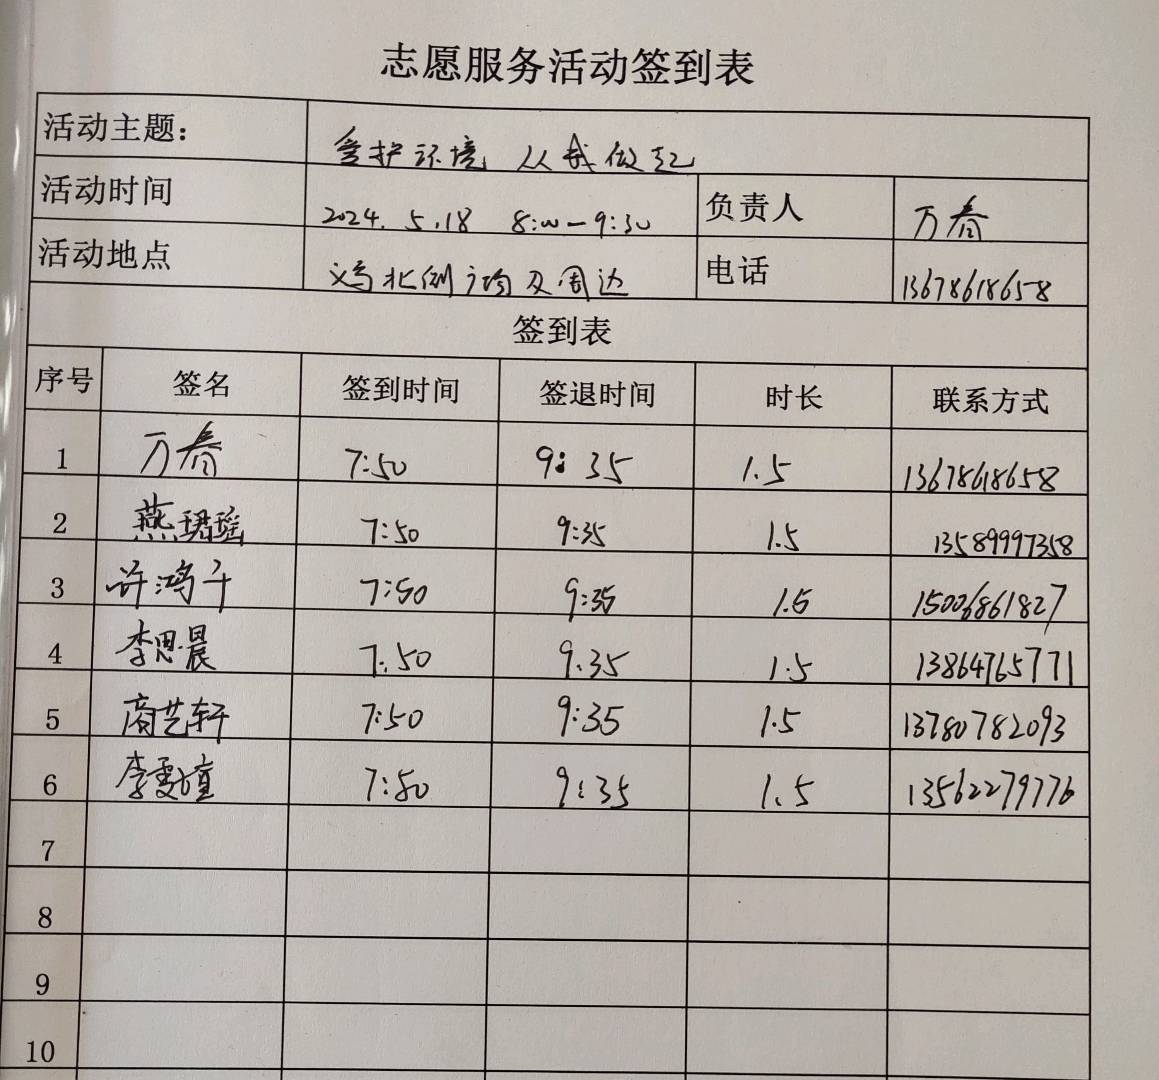 志愿服务活动签到表
活动主题： 爱护环境 从我做起
活动时间 2024.5.18 8:00-9:30 负责人 万春
活动地点 北侧 及周边 电话 13678618658
签到表
序号 签名 签到时间 签退时间 时长 联系方式
1 万春 7:50 9:35 1.5 13678618658
2 燕珺瑶 7:50 9:35 1.5 13589997358
3 许鸿千 7:50 9:35 1.5 15006861827
4 李思晨 7:50 9.35 1.5 13864765771
5 商艺轩 7:50 9:35 1.5 13780782093
6 李雯瞳 7:50 9:35 1.5 13562279776
7
8
9
10